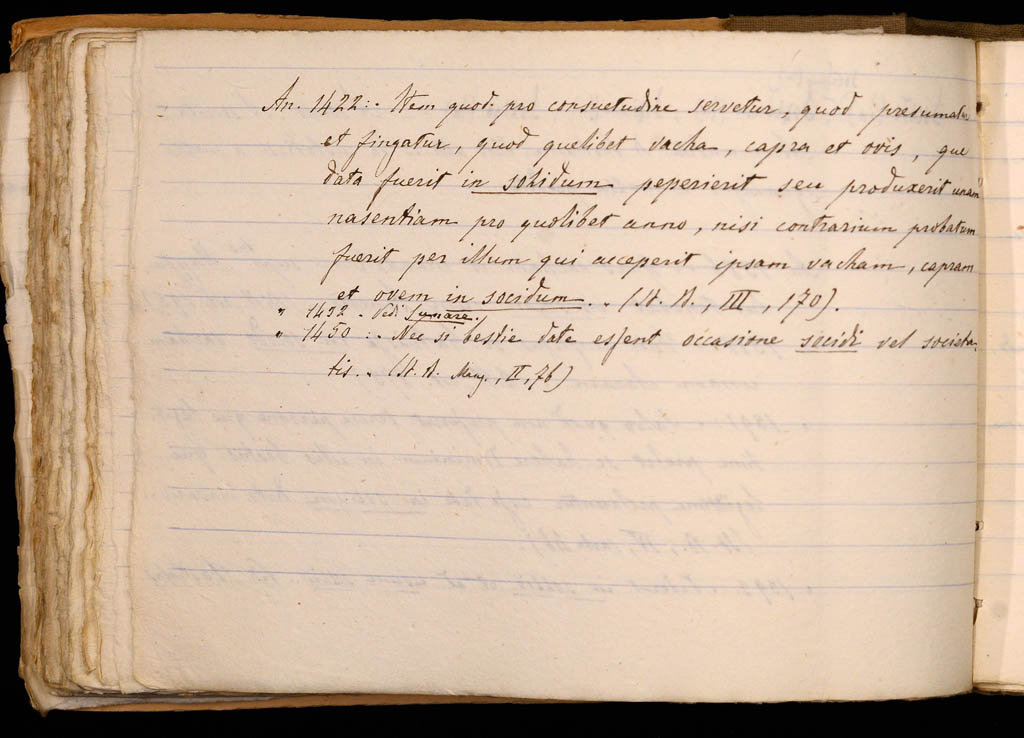 An. 1422:. Item quod pro consuetudine servetur, quod presumatur
et fingatur, quod quelibet vacha, capra et ovis, que
data fuerit in sokidum peperierit seu produxerit unam
nasentiam pro quolibet anno, nisi contrarium probatum
fuerit per illum qui acceperit ipsam vacham, capram
et ovem in socidum. „ (St. A., III, 170).
„ 1432. Vedi Junare.
„ 1450:. Nec si bestie date essent occasione socidi vel societa-
tis. „ (St. A. Mang., II, 76)